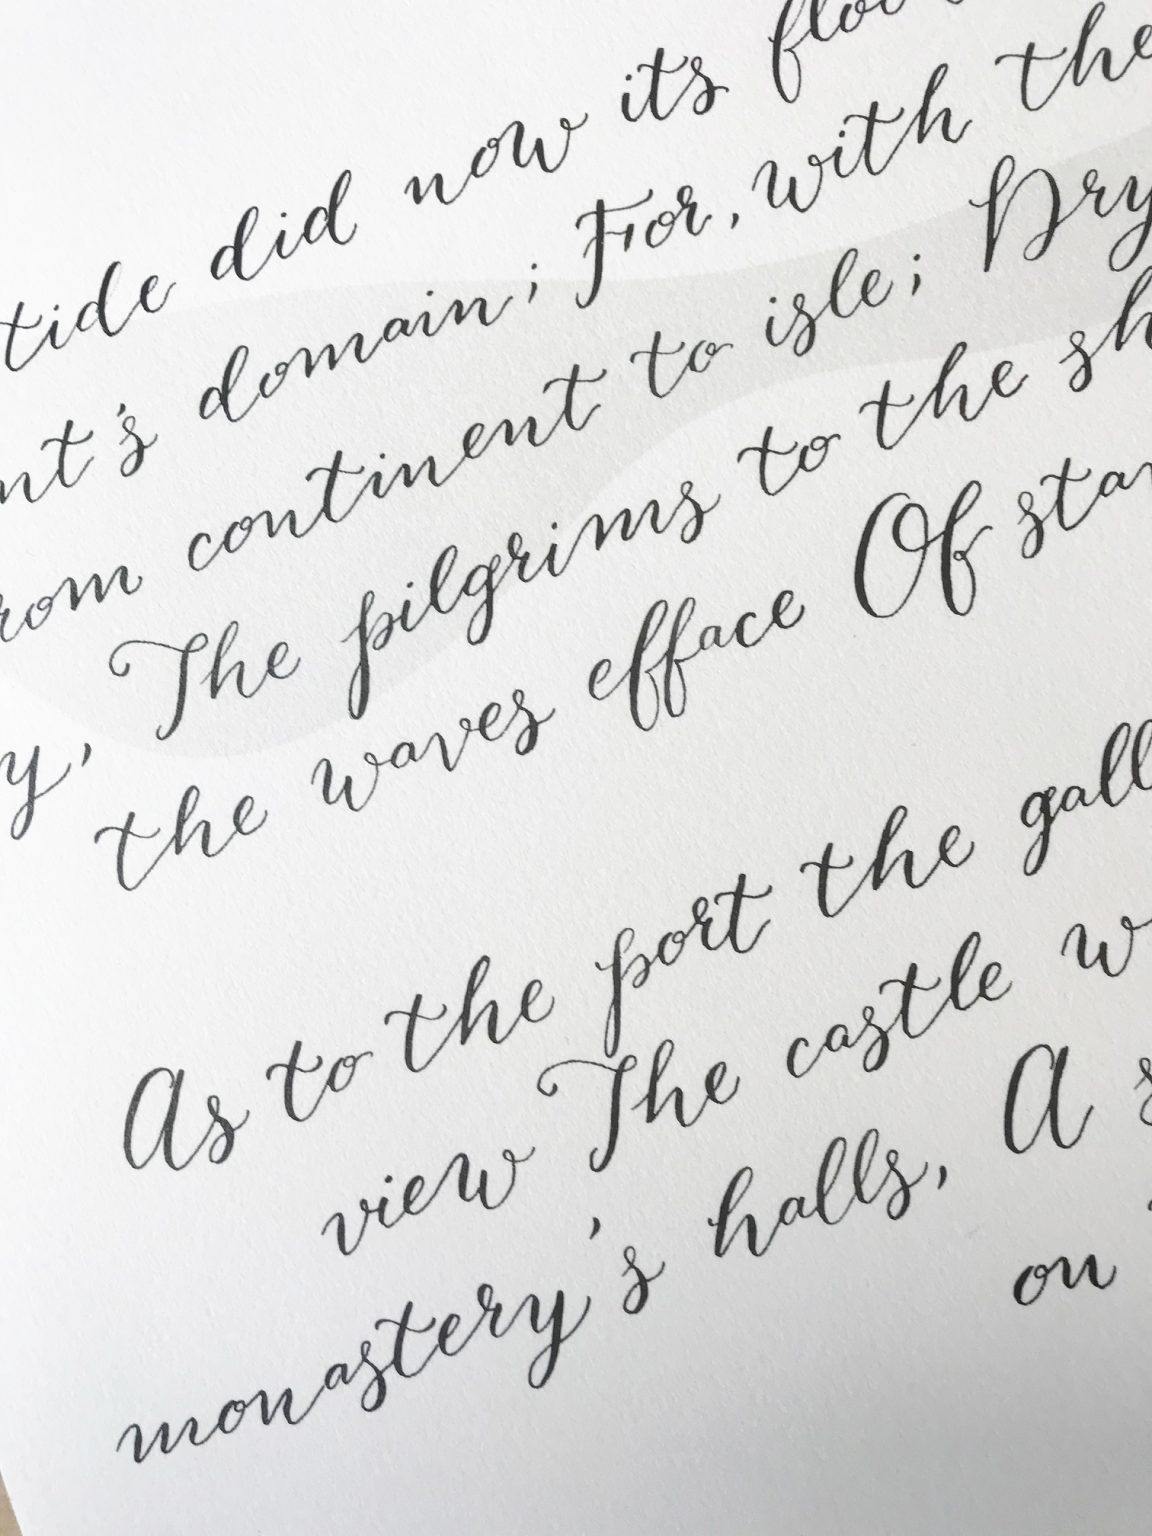 tide did now its
domain; For, with the
continent to isle; Dry
The pilgrims to the
the waves efface Of
As to the port the
view The castle
monastery's halls, A
on